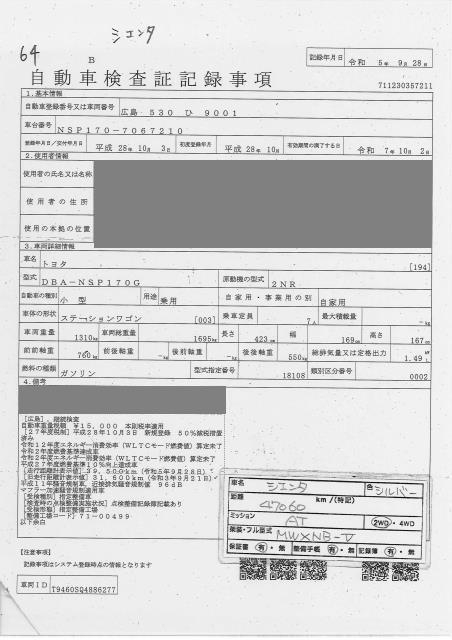 シエンタ
64
B
記録年月日 令和 5年 9月28日
自動車検査証記録事項
711230357211
1.基本情報
自動車登録番号又は車両番号 広島 530 ひ 9001
車台番号 NSP170-7067210
登録年月日/交付年月日 平成 28年10月 3日 初度登録年月 平成 28年10月 有効期間の満了する日 令和 7年10月 2日
2.使用者情報
使用者の氏名又は名称
使用者の住所
使用の本拠の位置
3.車両詳細情報
車名 トヨタ [194]
型式 DBA-NSP170G 原動機の型式 2NR
自動車の種別 小型 用途 乗用 自家用・事業用の別 自家用
車体の形状 ステーションワゴン [003] 乗車定員 7人 最大積載量 -kg
車両重量 1310kg 車両総重量 1695kg 長さ 423cm 幅 169cm 高さ 167cm
前前軸重 760kg 前後軸重 -kg 後前軸重 -kg 後後軸重 550kg 総排気量又は定格出力 1.49L
燃料の種類 ガソリン 型式指定番号 18108 類別区分番号 0002
4.備考
[広島],継続検査
自動車重量税額 ¥15,000 本則税率適用
[27年度税制]平成28年10月3日 新規登録 50%減税措置
済み
令和12年度エネルギー消費効率(WLTCモード燃費値)算定未了
令和2年度燃費基準達成車
令和2年度エネルギー消費効率(WLTCモード燃費値)算定未了
平成27年度燃費基準10%向上達成車
[走行距離計表示値]39,500km(令和5年9月28日)
[旧走行距離計表示値]31,600km(令和3年9月21日)
平成11年騒音規制車、近接排気騒音規制値 96dB
マフラー加速騒音規制適用車
[受検種別]指定整備車
[検査時の点検整備実施状況]点検整備記録簿記載あり
[受検形態]指定整備工場
[整備工場コード]71-00499
以下余白
車名 シエンタ 色 シルバー
距離 47060 km/(特記)
ミッション AT 2WD・4WD
架装・フル型式 MWXNB-V
保証書 有・無 整備手帳 有・無 記録簿 有・無
[注意事項]
記録事項はシステム登録時点の情報となります
車両ID T9460SQ4886277